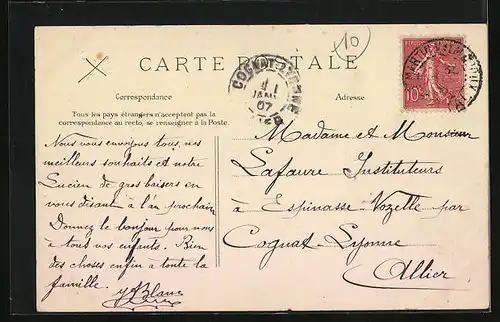 10
CARTE POSTALE
Correspondance
Adresse
Tous les pays étrangers n'acceptent pas la
correspondance au recto, se renseigner à la Poste.
COGNAT-LYONNE
1
JANV
07
10c
Nous vous envoyons tous, nos
meilleurs souhaits et notre
Lucien de gros baisers en
vous disant à l'an prochain
Donnez le bonjour pour nous
à tous vos enfants. Bien
des choses enfin à toute la
famille.
Blanc
Madame et Monsieur
Lafaure Instituteurs
à Espinasse-Vozelle par
Cognat-Lyonne
Allier